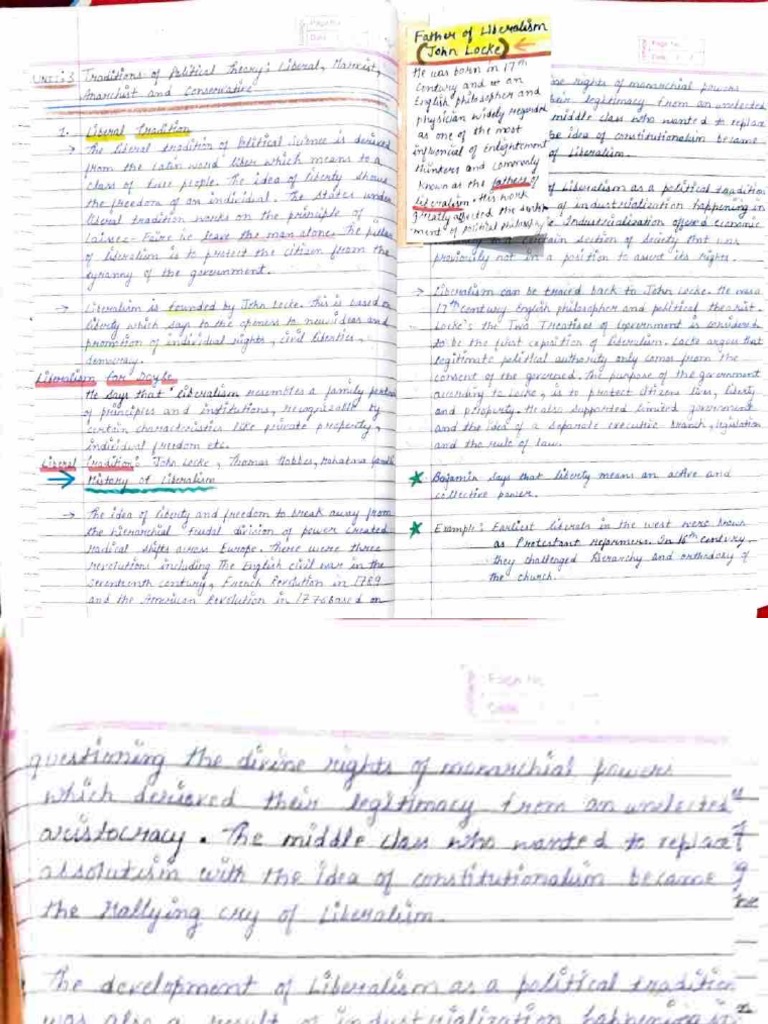 UNIT:3 Traditions of Political Theory: Liberal, Marxist,
Anarchist and Conservative
1. Liberal Tradition
→ The liberal tradition of Political Science is derived
from the Latin word liber which means to a
class of free people. The idea of liberty shows
the freedom of an individual. The states under
liberal tradition works on the principle of
Laissez-Faire ie leave the man alone. The
of liberalism is to protect the citizen from the
tyranny of the government.
→ Liberalism is founded by John Locke. This is based on
liberty which says to the openess to new ideas and
promotion of individual rights, civil liberties,
democracy.
Liberalism for Doyle
He says that "liberalism resembles a family
of principles and institutions, recognizable by
certain characteristics like private property,
individual freedom etc.
Liberal Tradition: John Locke, Thomas Hobbes, Mahatma Gandhi
→ History of Liberalism
→ The idea of liberty and freedom to break away from
the hierarchial feudal division of power created
radical shifts across Europe. There were three
revolutions including the English civil war in the
seventeenth century, French Revolution in 1789
and the American Revolution in 1776 based on
Father of Liberalism
(John Locke) ←
He was born in 17th
Century and was an
English philosopher and
physician widely regarded
as one of the most
influencial of Enlightenment
thinkers and commonly
known as the father of
liberalism. His work
greatly affected the
ment of Political Philosophy
ine rights of monarchial powers
heir legitimacy from an unelected
middle class who wanted to replace
he idea of constitutionalism became
of Liberalism.
of Liberalism as a political tradition
of industrialization happening in
Industrialization offered economic
certain section of society that was
previously not in a position to assert its rights.
→ Liberalism can be traced back to John Locke. He was a
17th century English philosopher and political theorist.
Locke's the Two Treatises of Government is considered
to be the first exposition of liberalism. Locke argues that
legitimate political authority only comes from the
consent of the governed. The purpose of the government
according to Locke, is to protect citizens lives, liberty
and property. He also supported limited government
and the idea of a separate executive branch, legislation
and the rule of law.
Benjamin says that liberty means an active and
collective power.
Example: Earliest liberals in the west were known
as Protestant reformers. In 16th century
they challenged hierarchy and orthodoxy of
the church.
Page No.
Date
questioning the divine rights of monarchial powers
which derieved their legitimacy from an unelected
aristocracy. The middle class who wanted to replace
absolutism with the idea of constitutionalism became
the rallying cry of Liberalism.
The development of Liberalism as a political tradition
was also a result of industrialization happening in